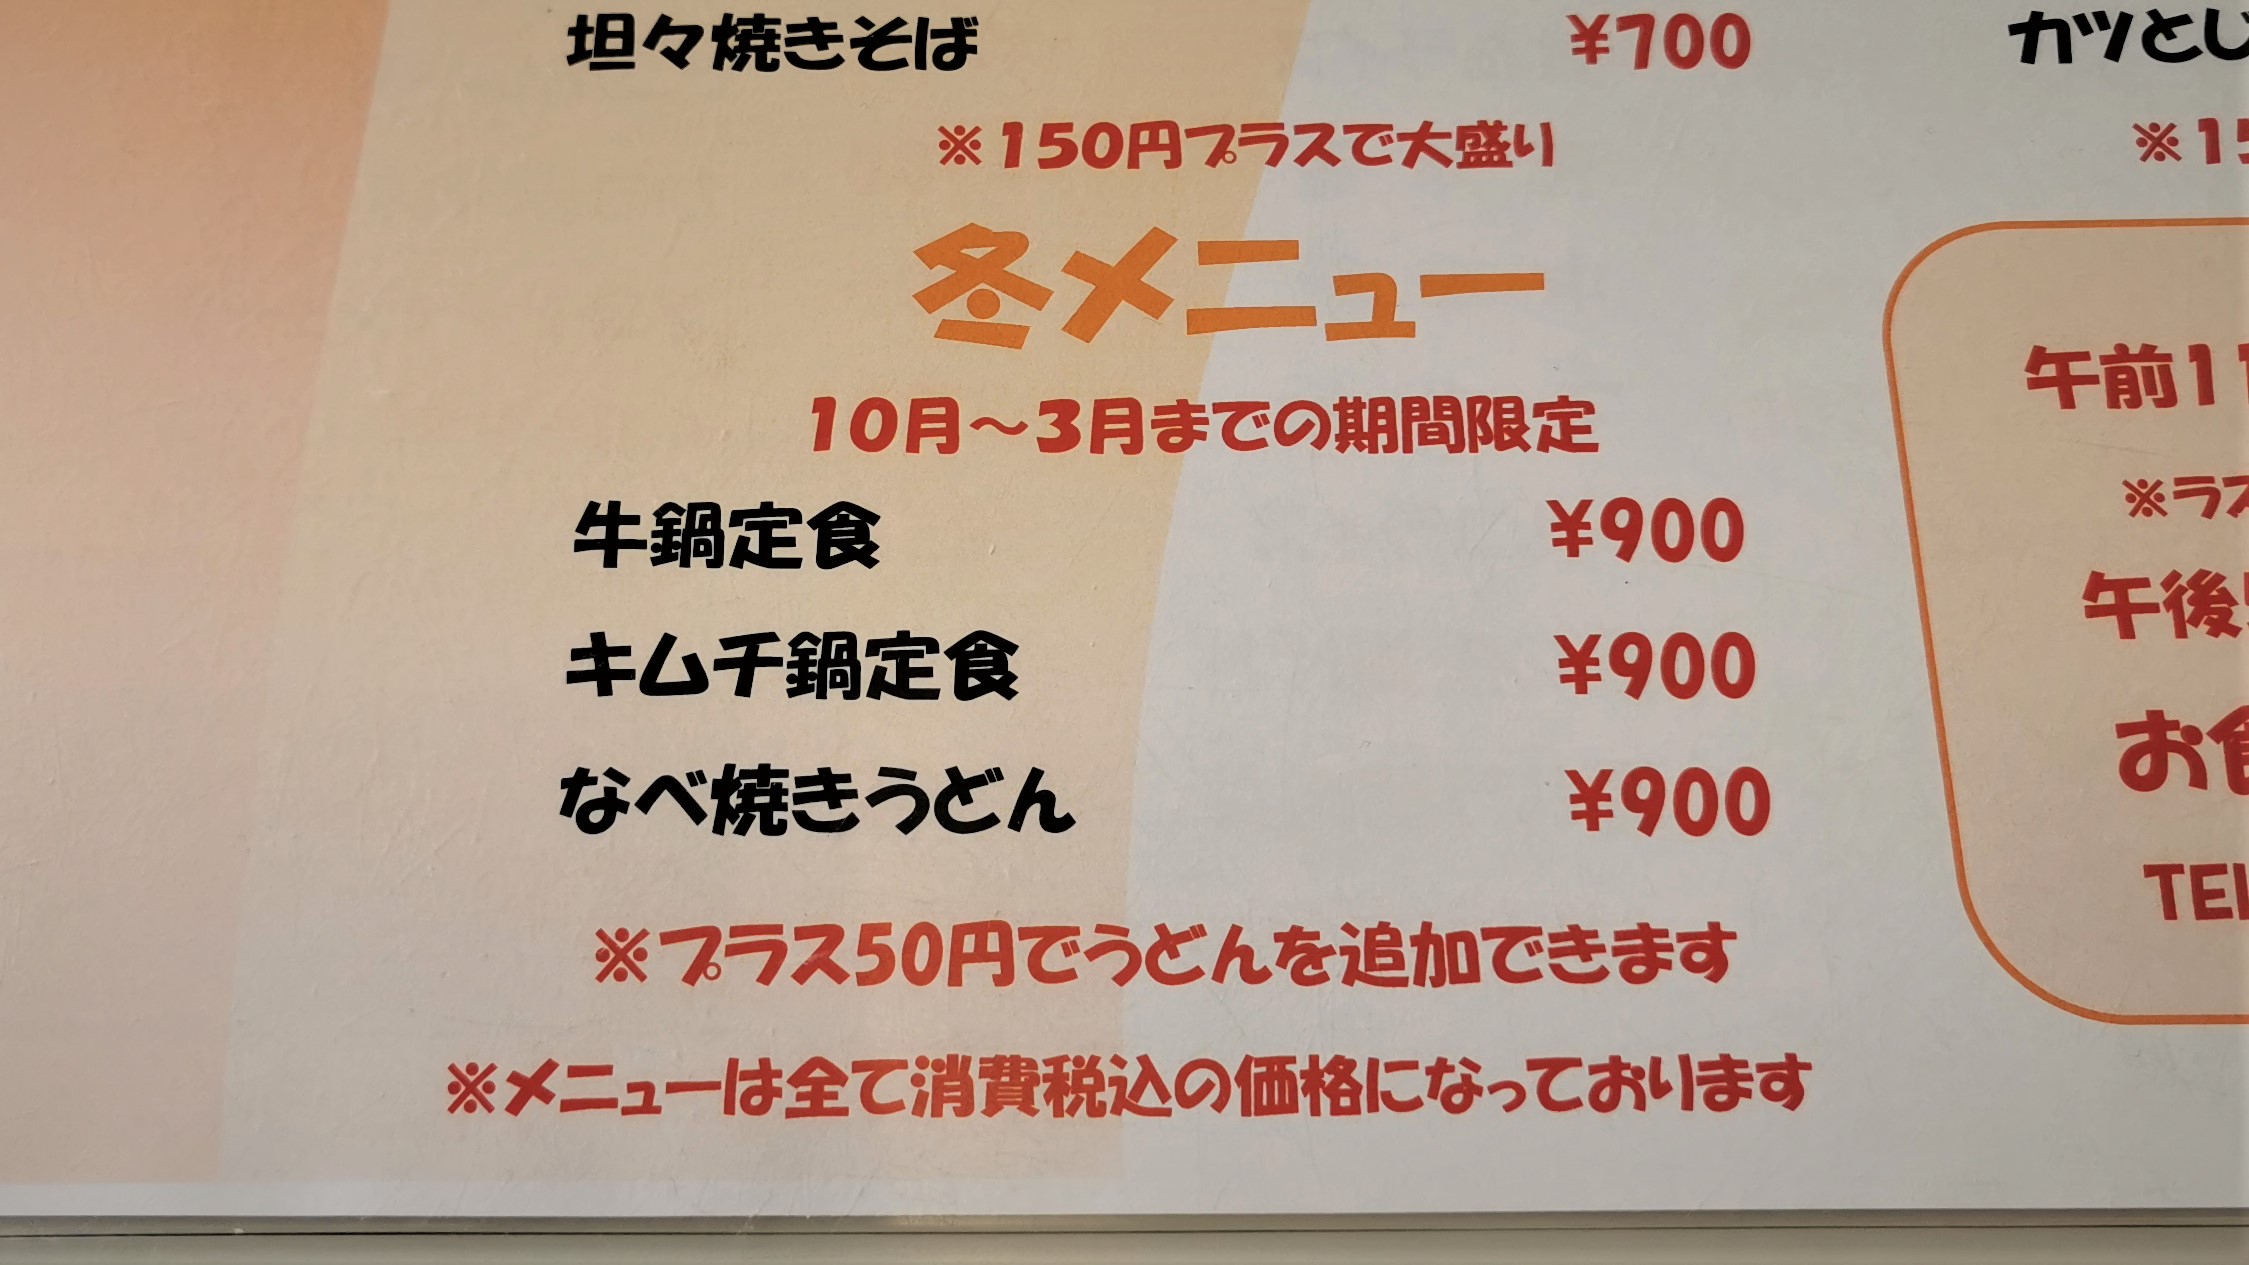 坦々焼きそば ¥700
※150円プラスで大盛り
冬メニュー
10月～3月までの期間限定
牛鍋定食 ¥900
キムチ鍋定食 ¥900
なべ焼きうどん ¥900
※プラス50円でうどんを追加できます
※メニューは全て消費税込の価格になっております
カツとじ
※15
午前11
※ラス
午後5
お食
TEL